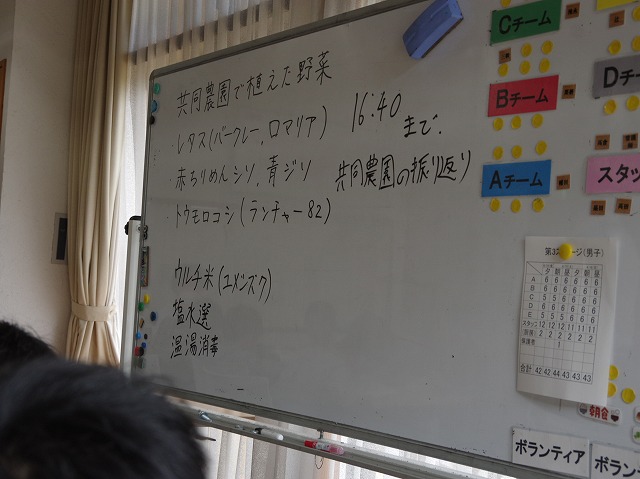 共同農園で植えた野菜
・レタス(バークレー、ロマリア)
・赤ちりめんシソ、青ジソ
・トウモロコシ(ランチャー82)
ウルチ米(ユメシズク)
塩水選
温湯消毒
16:40
まで.
共同農園の振り返り
Cチーム
Bチーム
Aチーム
Dチー
スタッ
(男子)
夕 朝 昼 夕 朝 昼
A 6 6 6 6 6 6
スタッフ 12 12 12 12 11 11
保護者
合計 42 42 44 43 43 43
朝食
ボランティア
ボラン